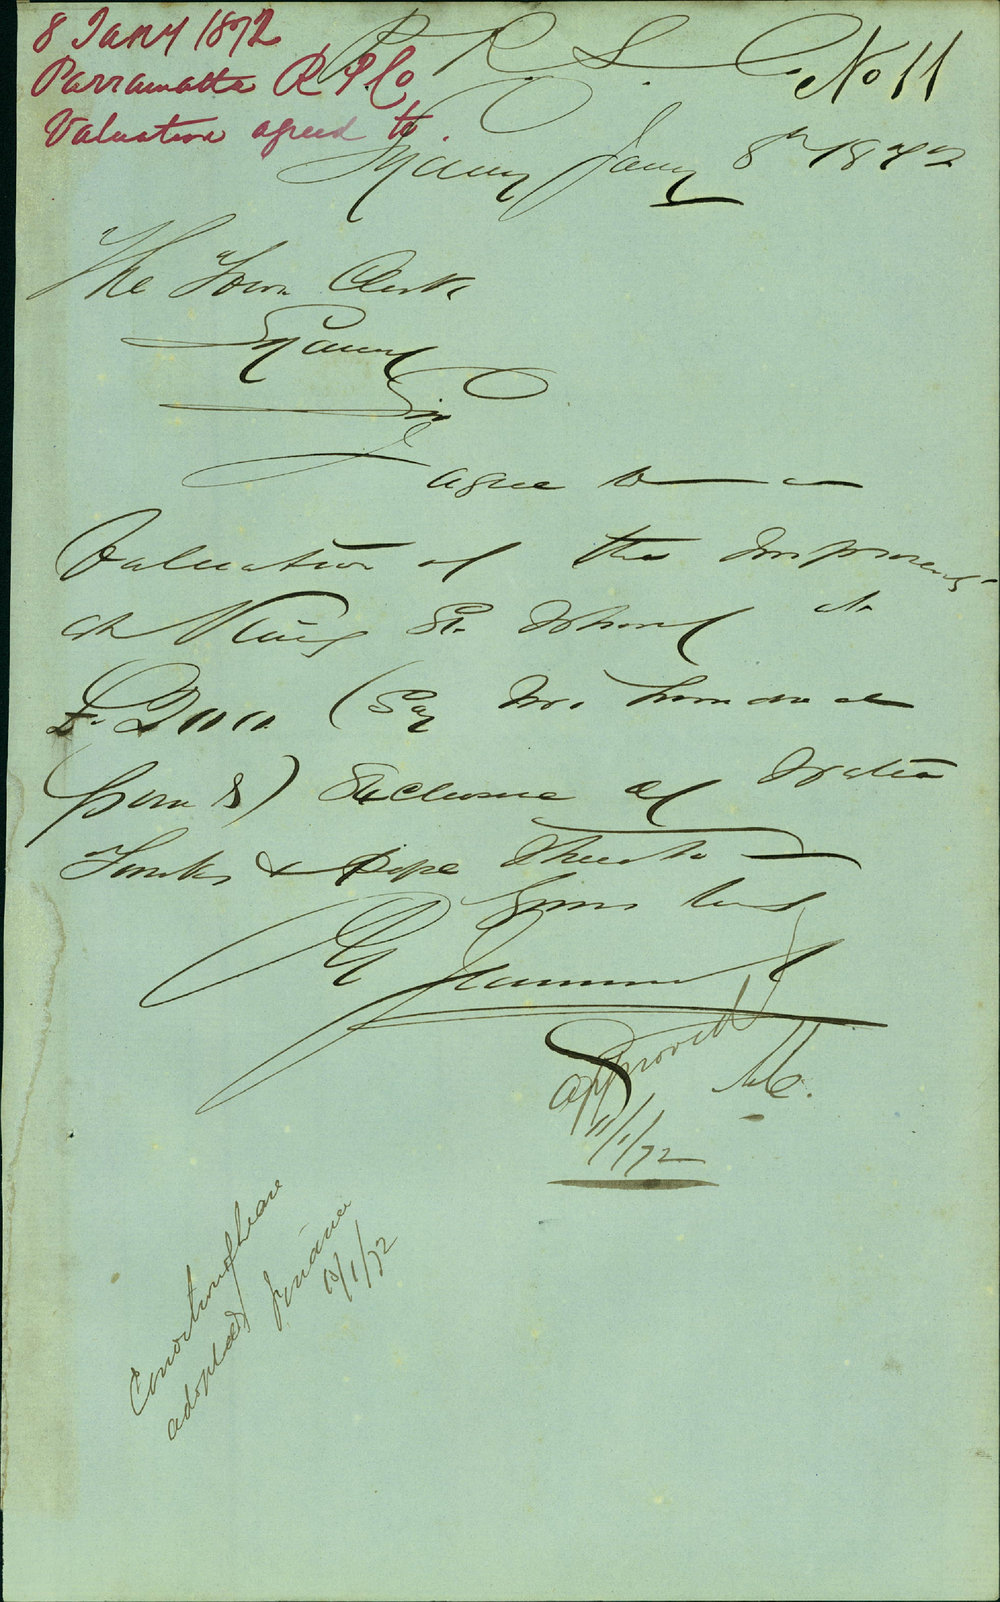 8 Jany 1872
Parramatta R. S. Co
Valuation agreed to.
P. R. S. Co
No 11
Sydney Jany 8th 1872
The Town Clerk
Sydney
Sir
I agree to
Valuation of the Improvemts
at King St. Wharf
£ 200 (Say Two hundred
pounds) Exclusive of Water
Tanks & Pipe thereto
Yours truly
Approved
11/1/72
adopted finance
10/1/72